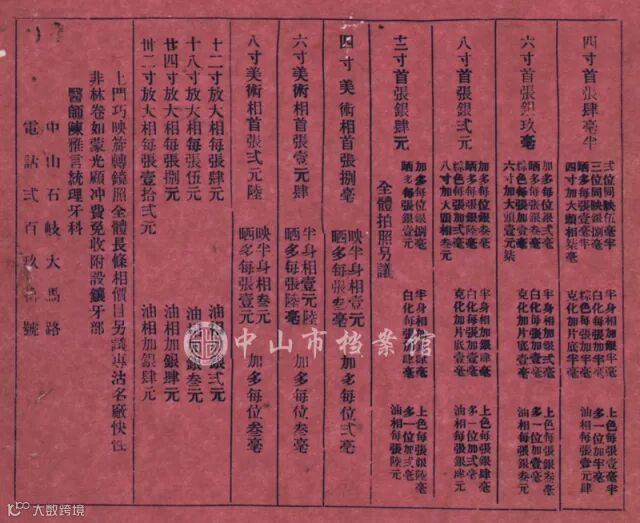 四寸首張肆毫半
弍位同映伍毫半
三位同映銀捌毫
晒多每張毫半
四寸加大頭相柒毫
半身相加銀毫半
白化每張加毫半
棕色每張加毫半
克化加片底半毫
上色每張壹毫半
多一位加半毫
油相每張弍元
六寸首張銀玖毫
加多每位銀弍毫
晒多每張銀叁毫
棕色每張加壹毫
六寸加大頭壹元柒
半身相加銀弍毫
白化每張加壹毫
克化加片底壹毫
上色每張銀叁毫
多一位加壹毫
油相每張銀叁元
八寸首張銀弍元
加多每位銀叁毫
晒多每張銀陸毫
棕色每張加弍毫
八寸加大頭相叁元
半身相加銀肆毫
白化每張加弍毫
克化加片底壹毫
上色每張銀肆毫
多一位加弍毫
油相每張銀肆元
十二寸首張銀肆元
加多每位銀捌毫
晒多每張銀壹元
全體拍照另議
半身相加銀捌毫
白化每張銀肆毫
上色每張銀陸毫
多一位加弍毫
油相每張陸元
四寸美術相首張捌毫
映半身相壹元
晒多每張叁毫
加多每位弍毫
六寸美術相首張壹元肆
半身相壹元陸
晒多每張陸毫
加多每位叁毫
八寸美術相首張弍元陸
映半身相叁元
晒多每張壹元
加多每位叁毫
十二寸放大相每張肆元
油相加銀弍元
十八寸放大相每張伍元
油相加銀叁元
廿四寸放大相每張捌元
油相加銀肆元
卅二寸放大相每張壹拾弍元
油相加銀肆元
上門巧映旋轉鏡照全體長條相價目另議專沽名廠快性
非林卷如蒙光顧冲費免收附設鑲牙部
醫師陳雅言統理牙科
中山石岐大馬路
電話弍百玖拾號
中山市档案馆
大数跨境